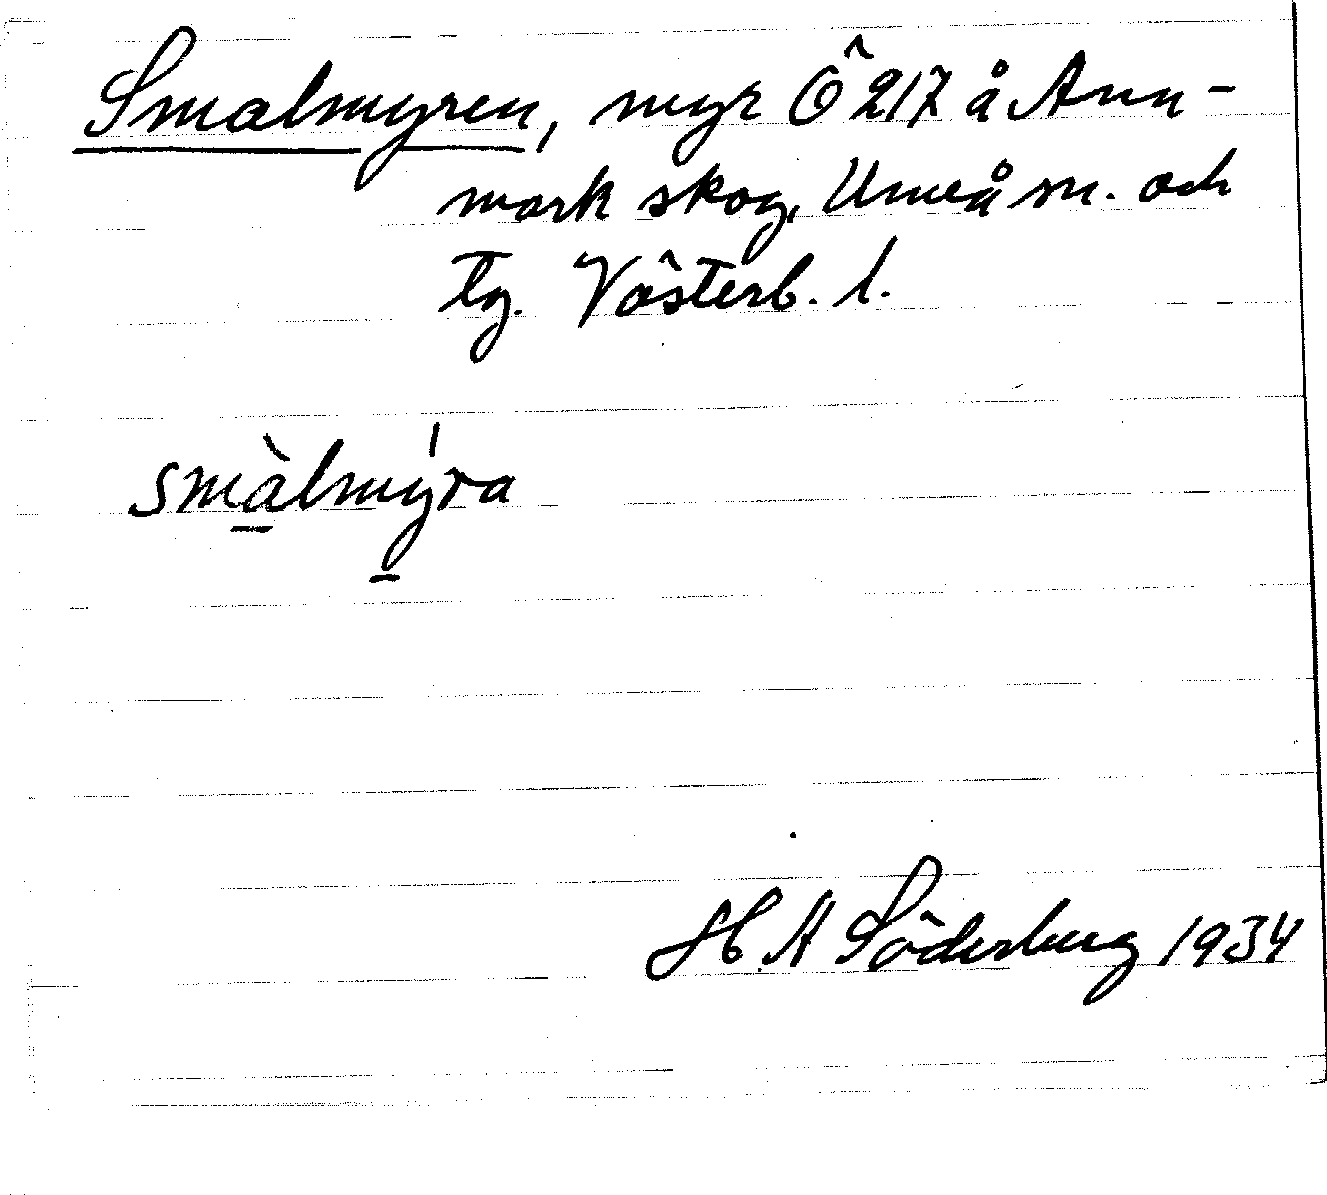 Smalmyren, myr Ö 217 å Ann-
mark skog, Umeå sn. och
tg. Västerb. l.
smàlmýra
H A Söderberg 1934